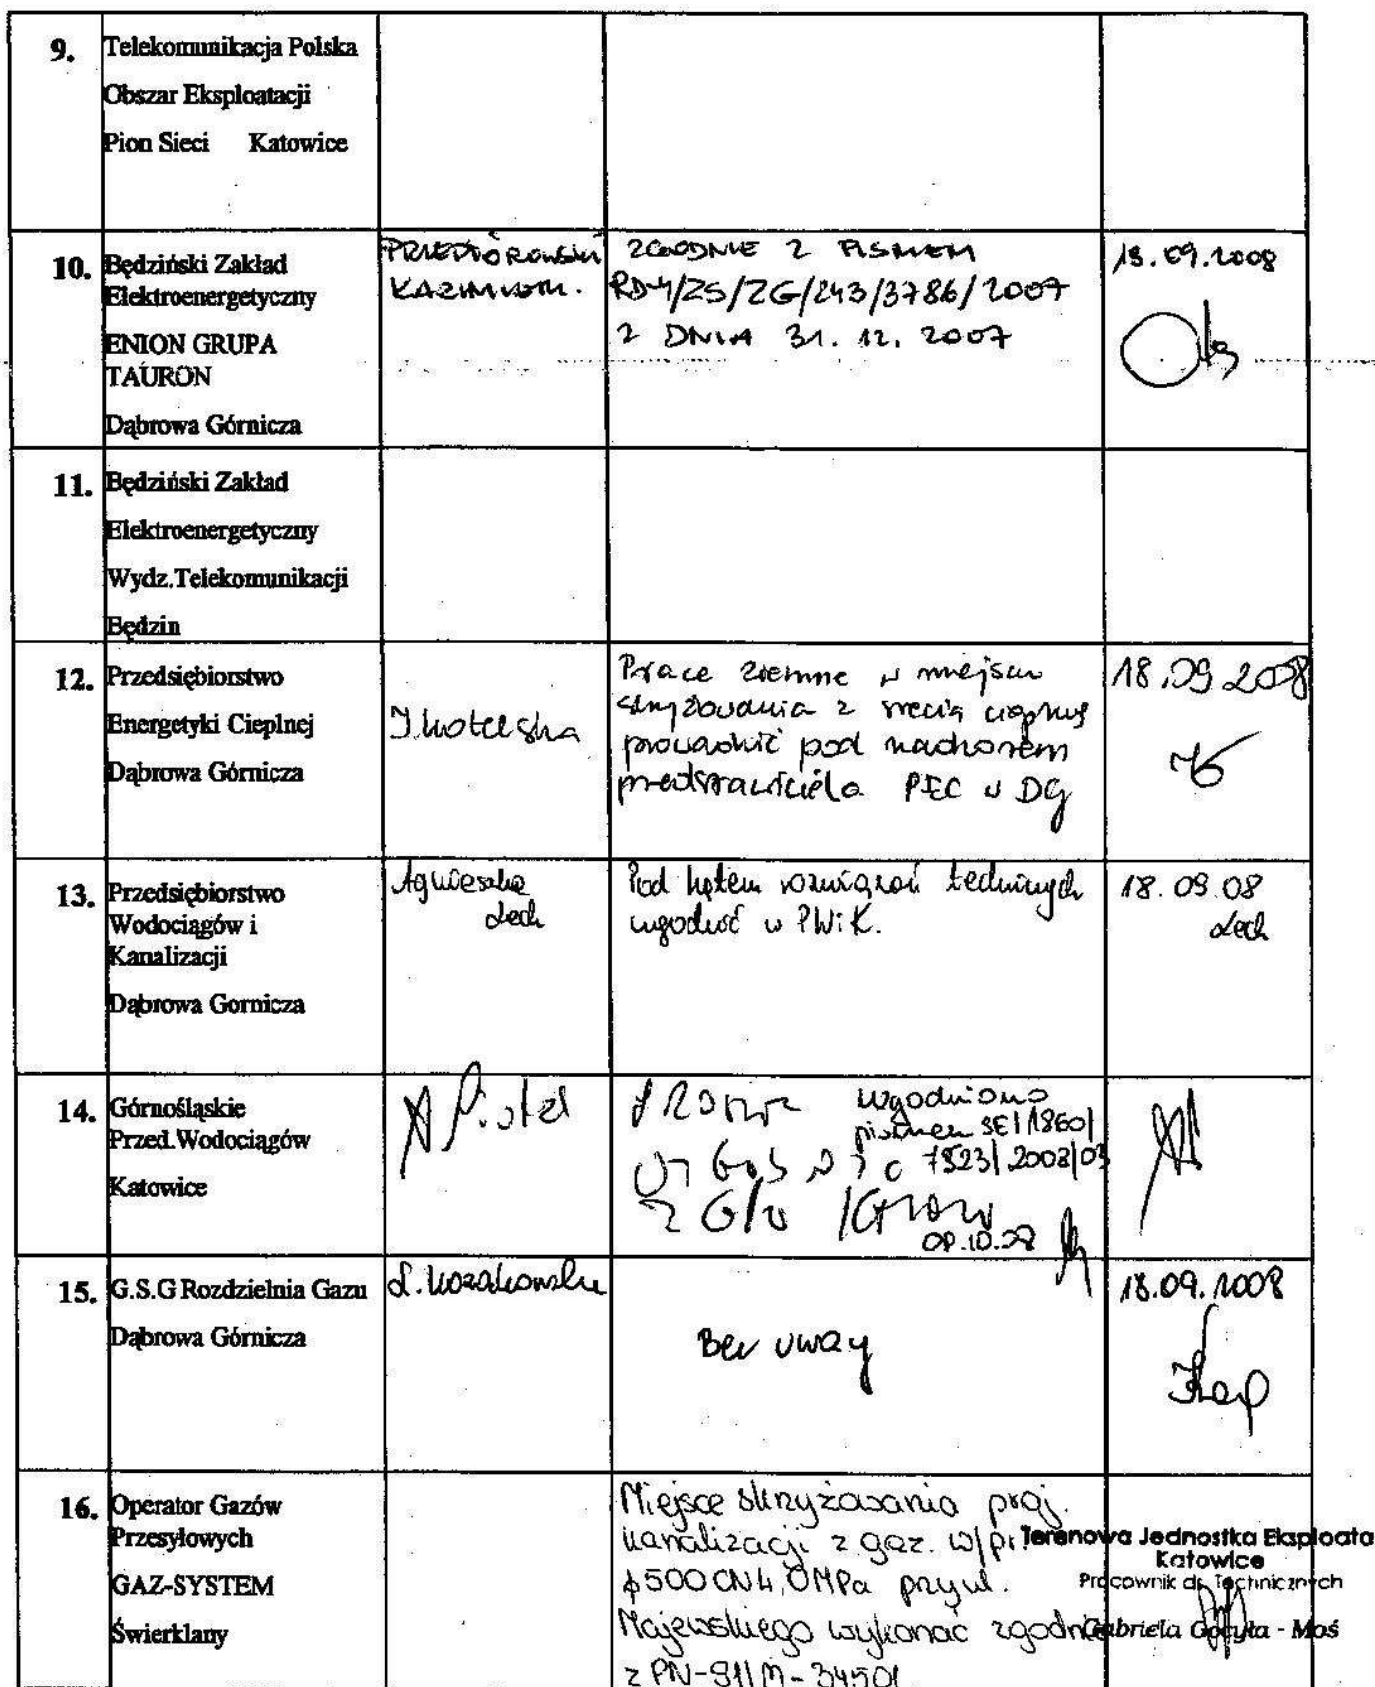 9. Telekomunikacja Polska
Obszar Eksploatacji
Pion Sieci Katowice
10. Będziński Zakład
Elektroenergetyczny
ENION GRUPA
TAURON
Dąbrowa Górnicza
KAZIMIERZ.
ZGODNIE Z PISMEM
RD-4/ZS/ZG/243/3786/2007
Z DNIA 31.12.2007
18.09.2008
11. Będziński Zakład
Elektroenergetyczny
Wydz.Telekomunikacji
Będzin
12. Przedsiębiorstwo
Energetyki Cieplnej
Dąbrowa Górnicza
Prace ziemne w miejscu
skrzyżowania z siecią cieplną
prowadzić pod nadzorem
przedstawiciela PEC w DG
18.09.2008
13. Przedsiębiorstwo
Wodociągów i
Kanalizacji
Dąbrowa Gornicza
Agnieszka
Lech
Pod kątem rozwiązań technicznych
uzgodnić w PWiK.
18.09.08
Lech
14. Górnośląskie
Przed.Wodociągów
Katowice
uzgodniono
pismem SE/1860/
7523/2008/03
15. G.S.G Rozdzielnia Gazu
Dąbrowa Górnicza
Bez uwag
18.09.2008
16. Operator Gazów
Przesyłowych
GAZ-SYSTEM
Świerklany
Miejsce skrzyżowania proj.
kanalizacji z gaz. w/pr.
φ500 CN4,0MPa przy ul.
Majewskiego wykonać zgodnie
z PN-91/M-34501
Terenowa Jednostka Eksploata
Katowice
Pracownik ds. Technicznych
Gabriela Gocyła - Moś